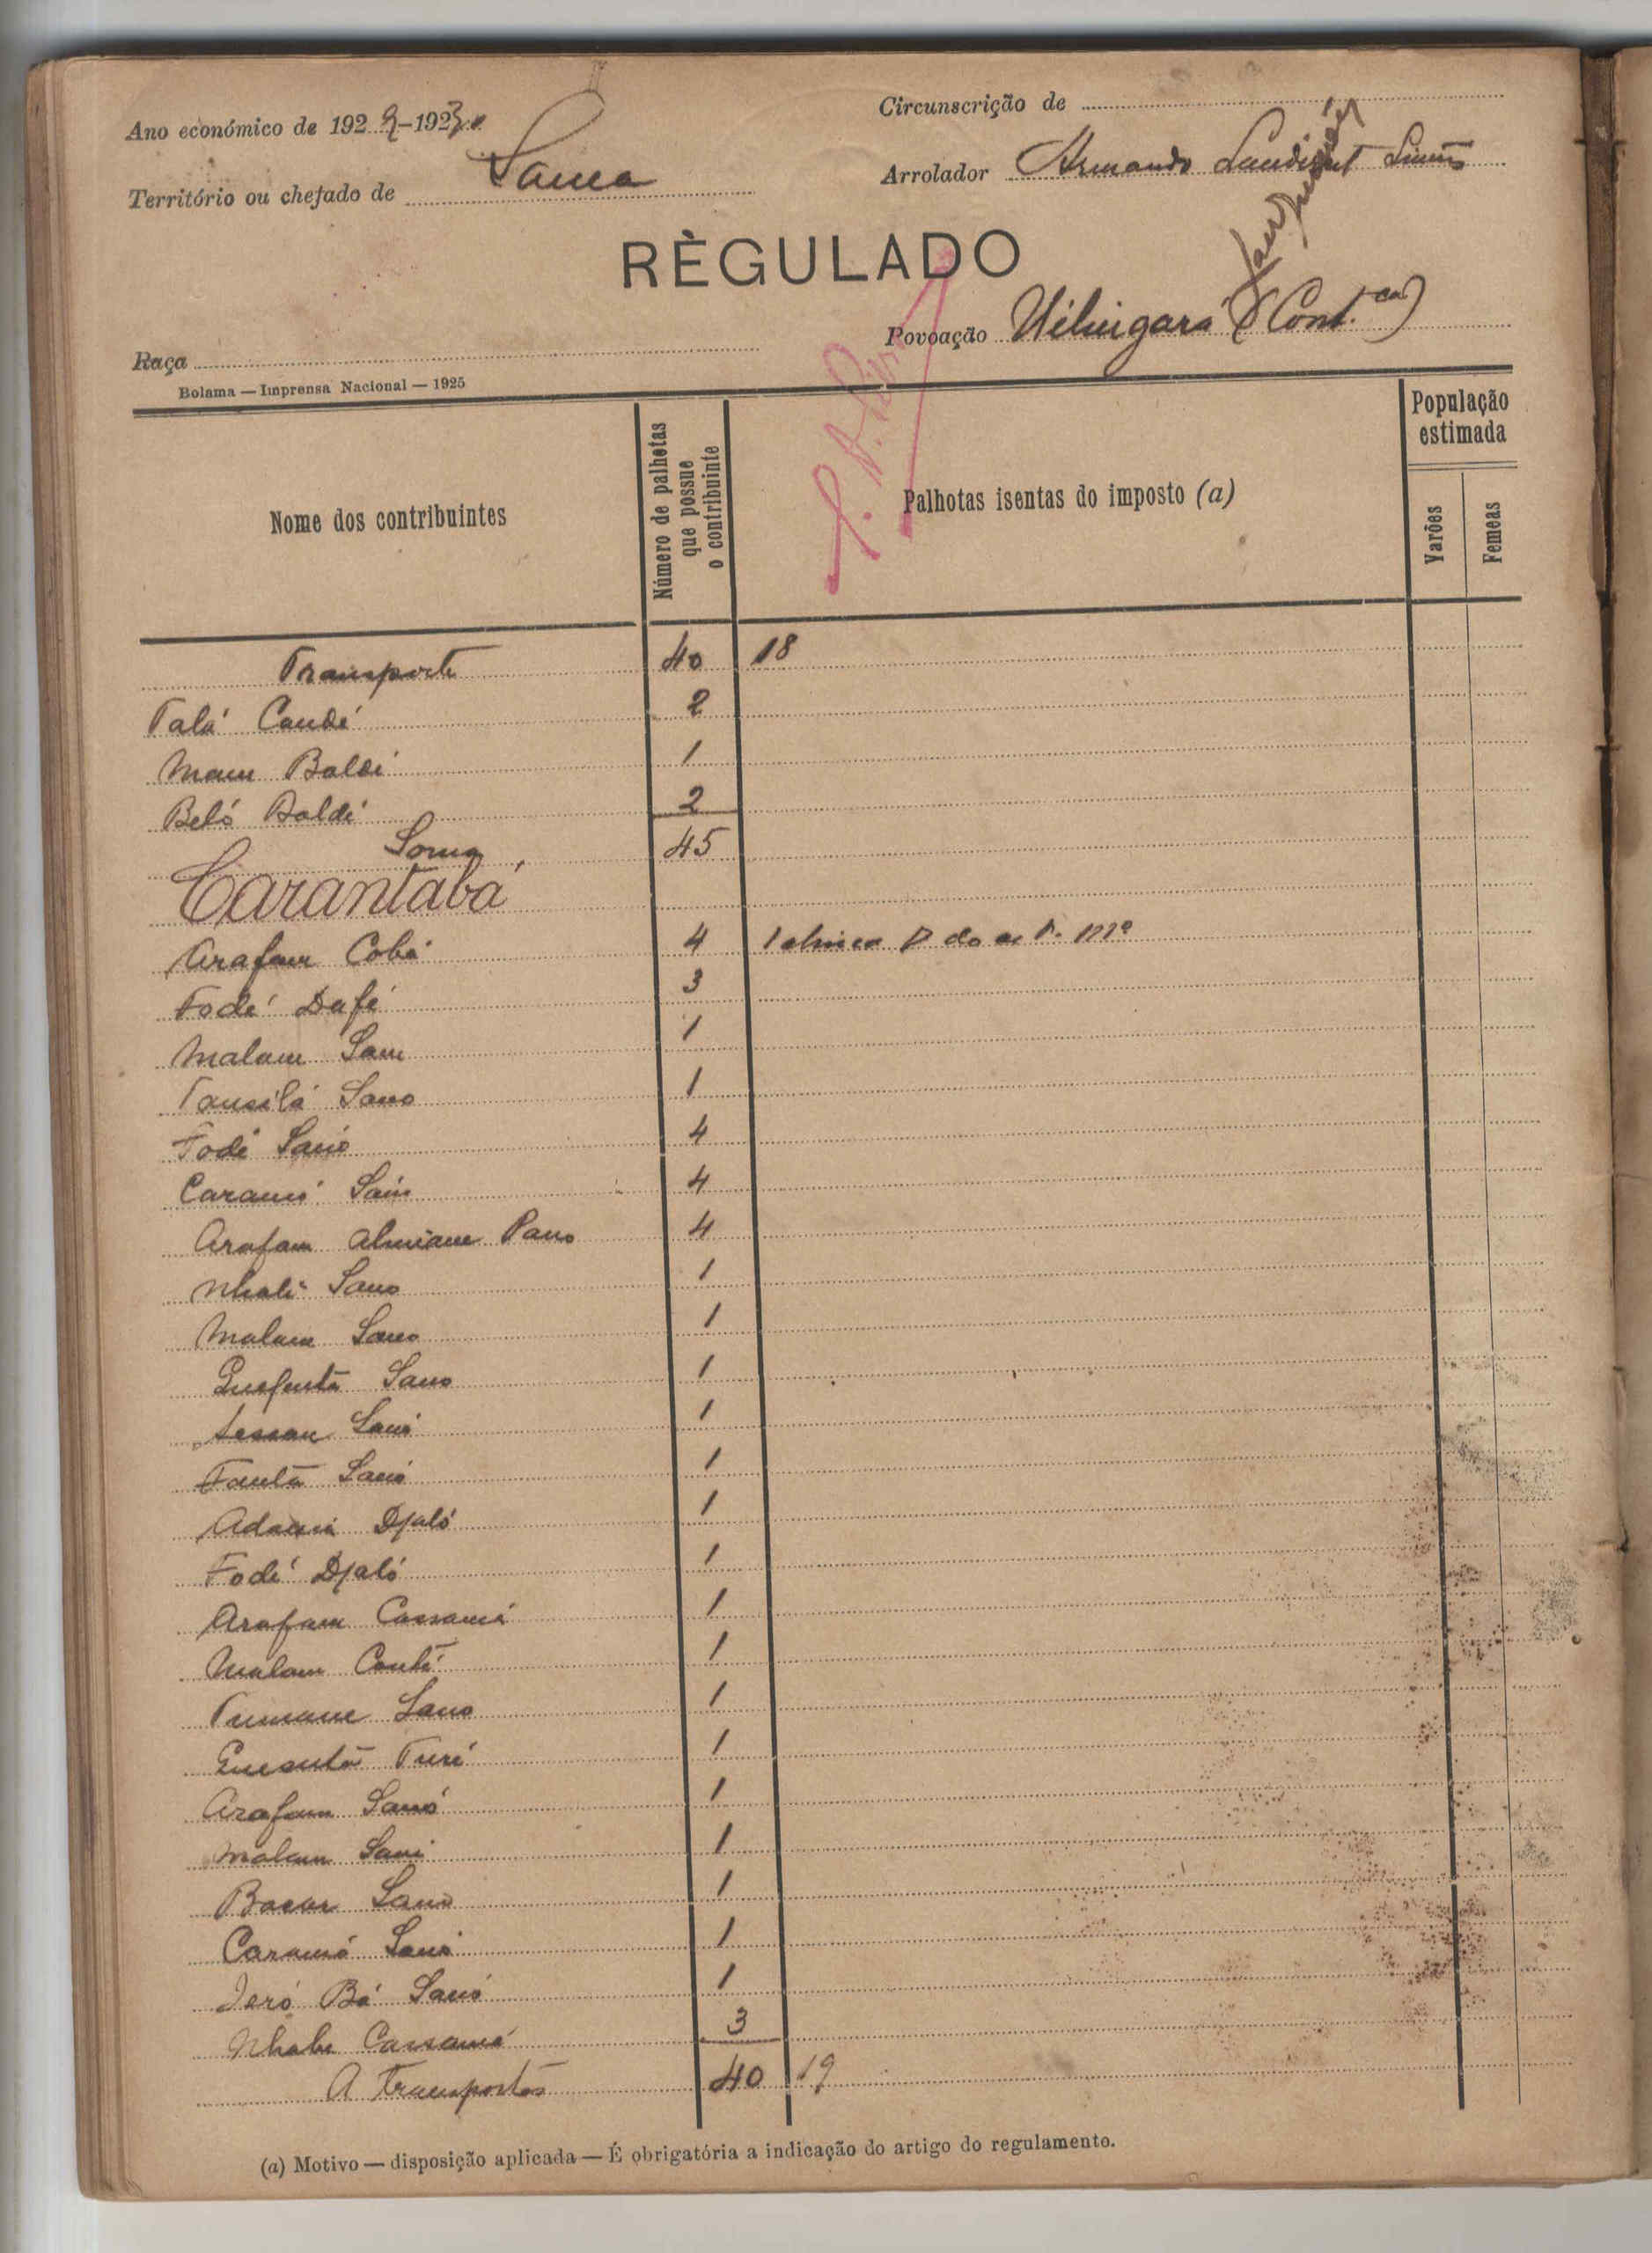 Ano económico de 1929-1930
Circunscrição de
Território ou chefado de Sama
Arrolador Armando Simões
RÈGULADO
Povoação (Cont.ca)
Raça
Bolama — Imprensa Nacional — 1925
Nome dos contribuintes
Número de palhetas que possue o contribuinte
Palhotas isentas do imposto (a)
População estimada
Varões
Femeas
Transporte 40 18
Talá Candé 2
Mam Baldé 1
Beló Baldé 2
Soma 45
Carantabá
Arafam Cobá 4
Fodé Dafé 3
Malam Sani 1
Sano 1
Fodé Sanó 4
Caramó Sanó 4
Arafam Almiane Pano 4
Nhali Sano 1
Malam Sano 1
Quefentá Sano 1
Sanó 1
Fantá Sanó 1
Adama Djaló 1
Fodé Djaló 1
Arafam Cassamá 1
Malam Conté 1
Tumane Sano 1
Turé 1
Arafam Sanó 1
Malam Sani 1
Bacar Sano 1
Caramó Sanó 1
Jeró Bá Sanó 1
Nhabe Cassamá 3
A transportar 40 19
(a) Motivo — disposição aplicada — É obrigatória a indicação do artigo do regulamento.